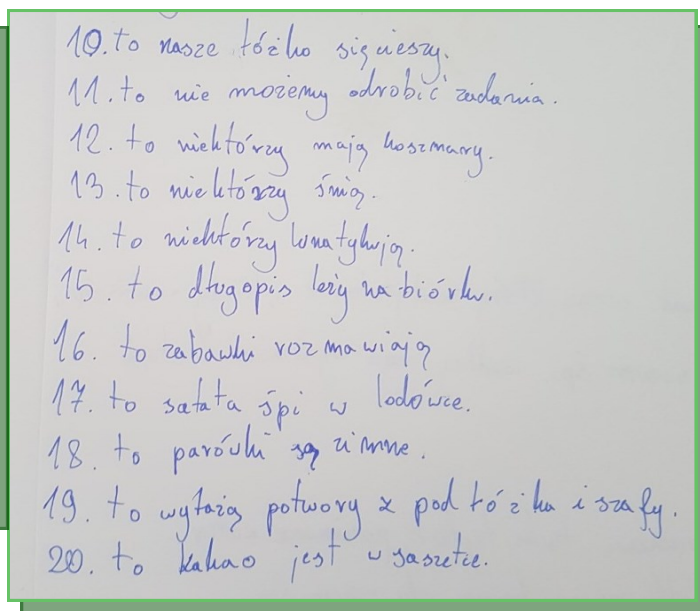 10. to nasze łóżko się cieszy.
11. to nie możemy odrobić zadania.
12. to niektórzy mają koszmary.
13. to niektórzy śnią.
14. to niektórzy lunatykują.
15. to długopis leży na biórku.
16. to zabawki rozmawiają
17. to sałata śpi w lodówce.
18. to parówki są zimne.
19. to wyłażą potwory z pod łóżka i szafy.
20. to kakao jest w saszetce.